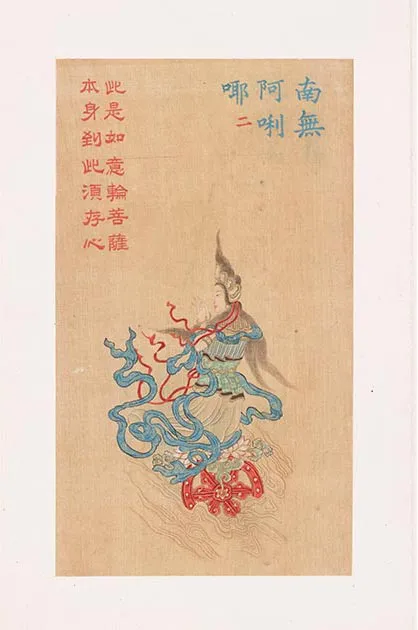 南無
阿唎
耶
二
此是如意輪菩薩
本身到此須存心